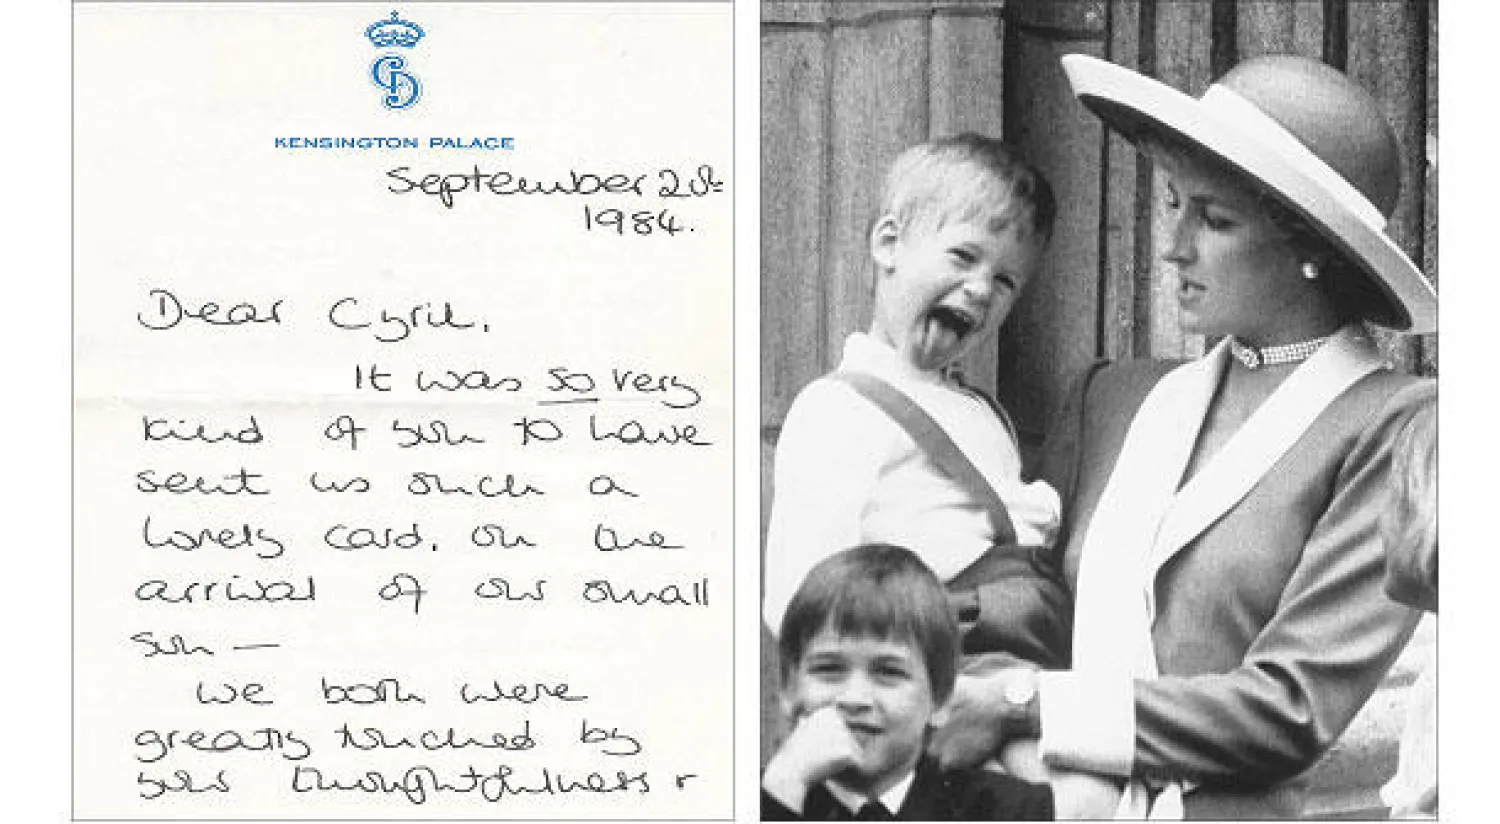 KENSINGTON PALACE
September 20th
1984.
Dear Cyril,
It was so very
kind of you to have
sent us such a
lovely card, on the
arrival of our small
son —
We both were
greatly touched by
your thoughtfulness +